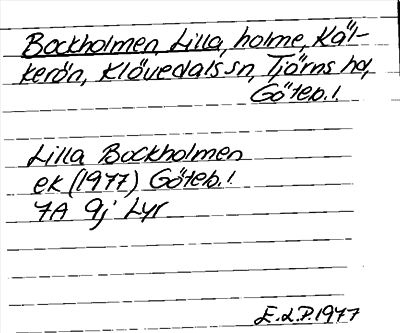 Bockholmen, Lilla, holme, Käl-
kerön, Klövedals sn, Tjörns hd,
Göteb. l.
Lilla Bockholmen
ek (1977) Göteb. l.
7A 9j Lyr
E.L.P. 1977